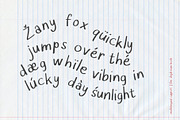 Żany fox qüickly
jumps ovér thé
dæg while vibing in
lúcky dày śunlight